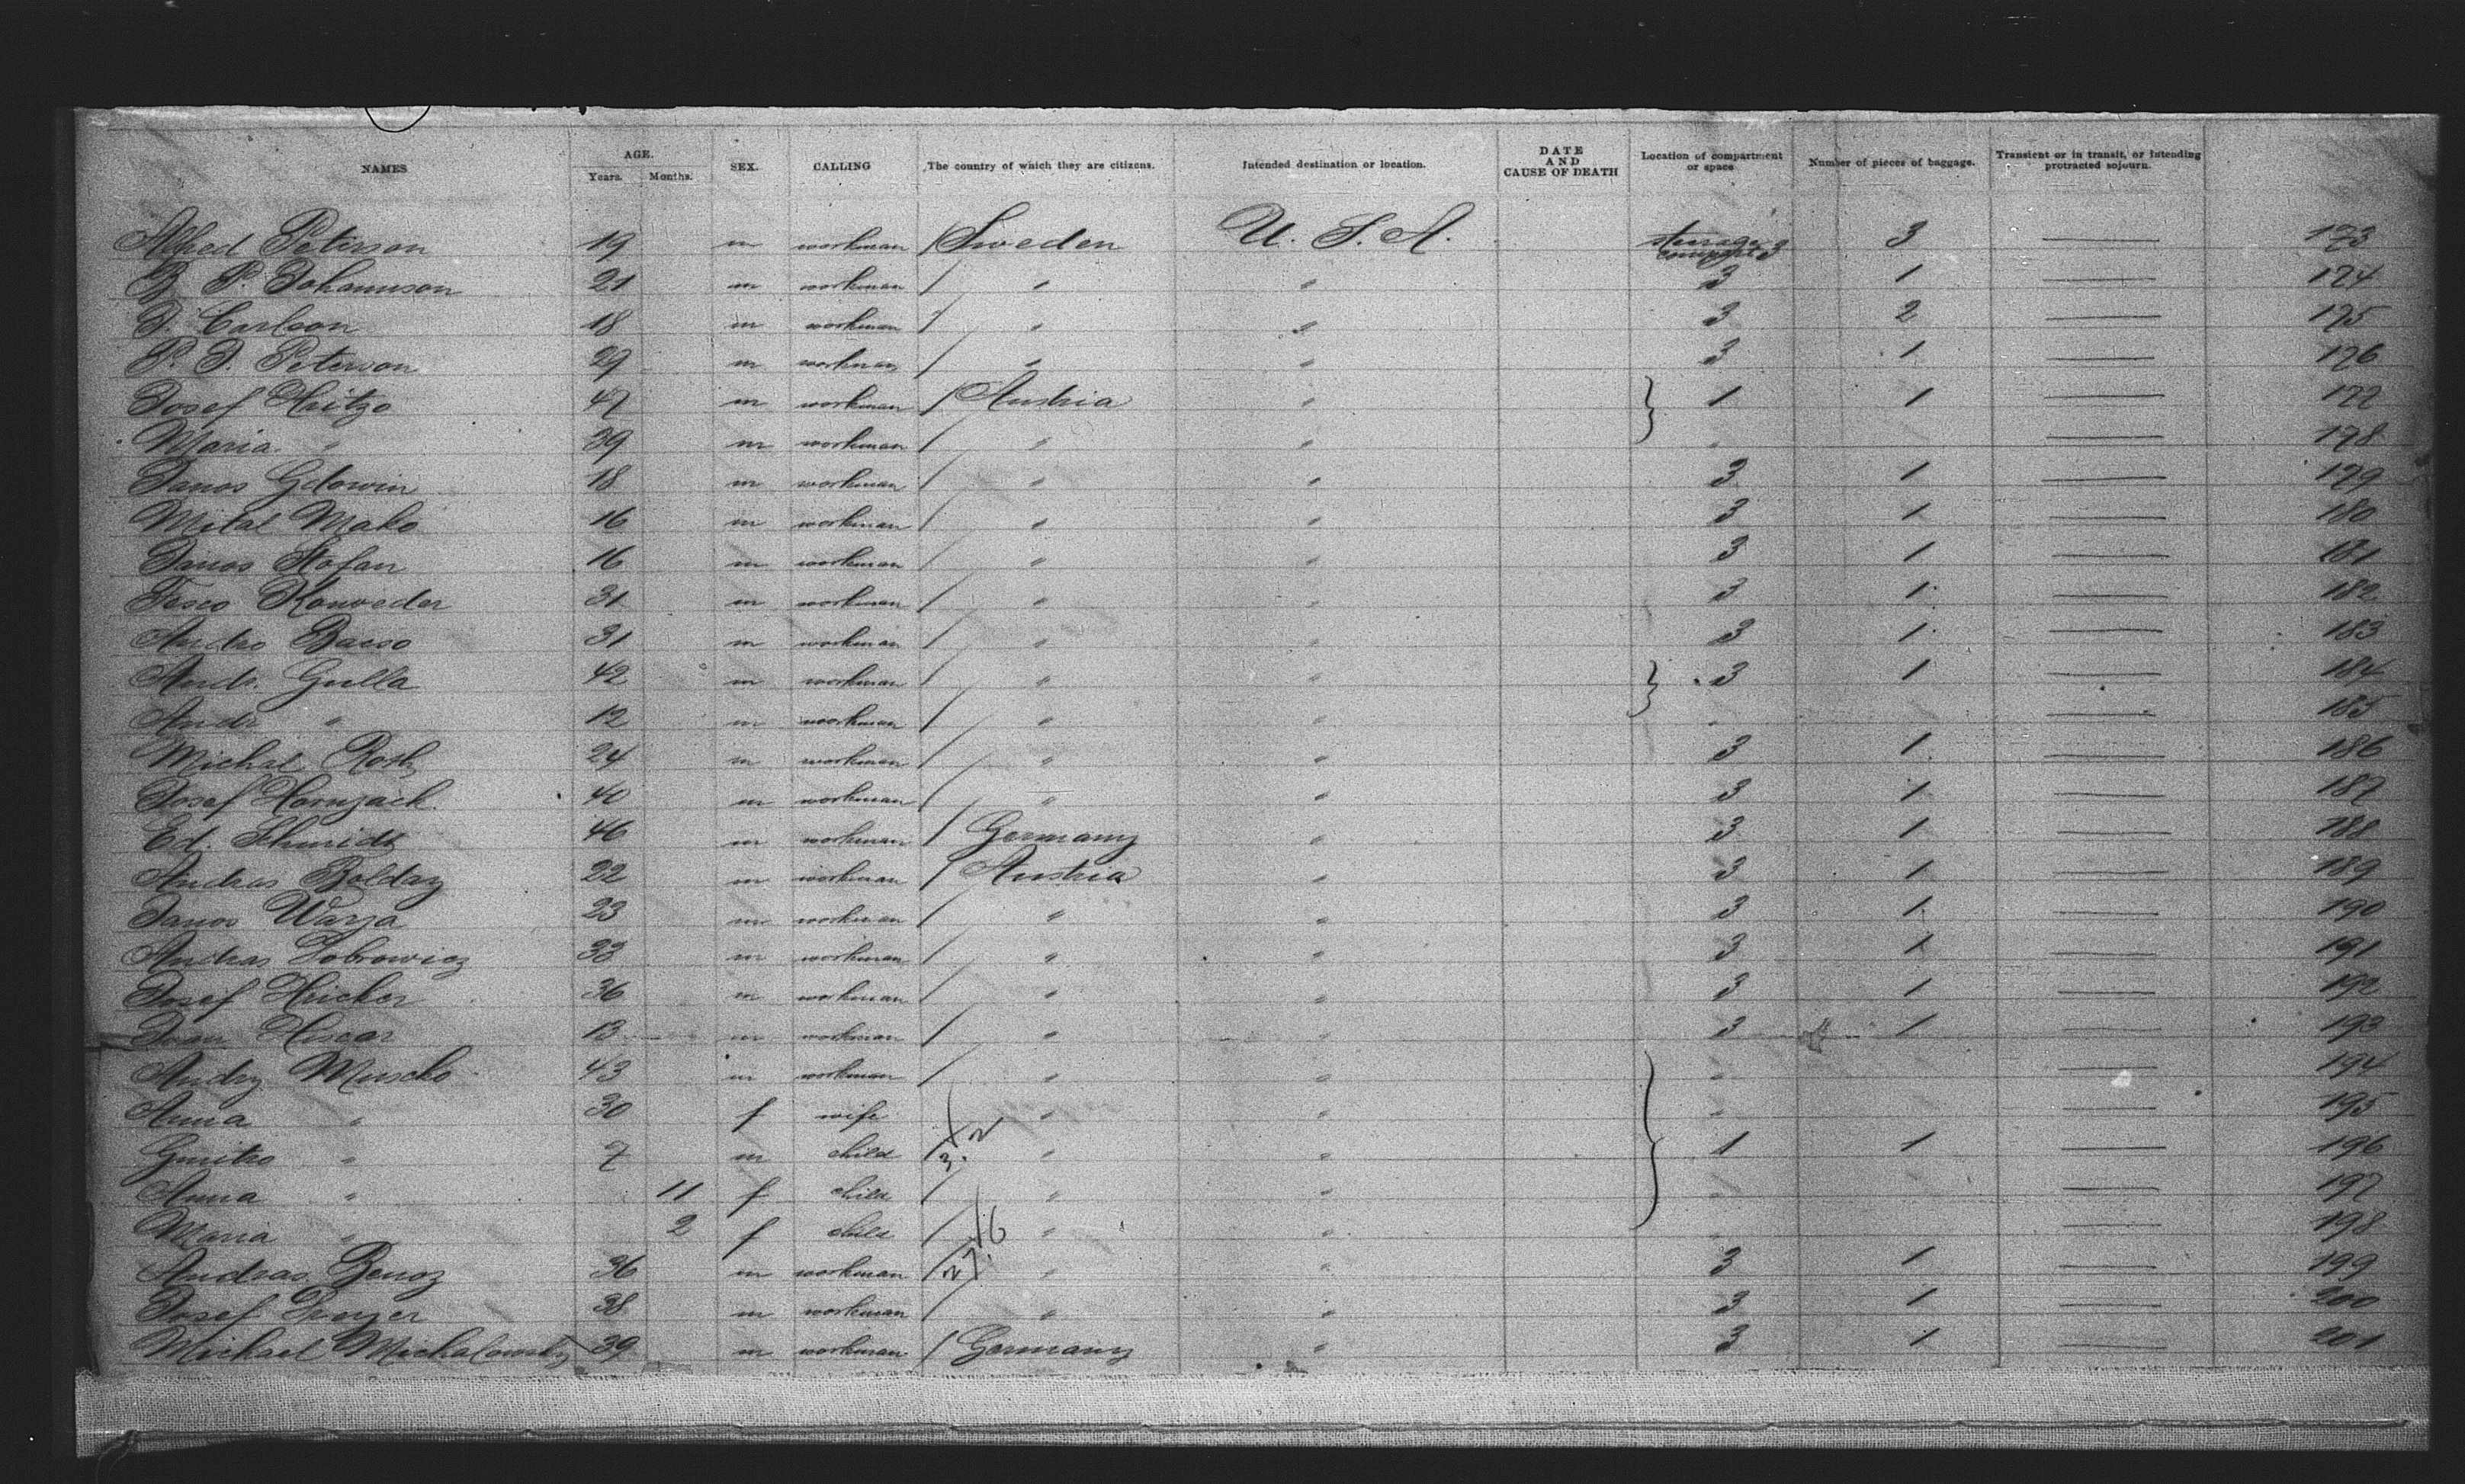 NAMES AGE. Years. Months. SEX. CALLING The country of which they are citizens. Intended destination or location. DATE AND CAUSE OF DEATH Location of compartment or space Number of pieces of baggage. Transient or in transit, or intending protracted sojourn.
Alfred Peterson 19 m workman / Sweden U. S. A. steerage compart 3 3 — 173
P. Johannson 21 m workman / " " 3 1 — 174
J. Carlson 18 m workman / " " 3 2 — 175
P. J. Peterson 29 m workman / " " 3 1 — 176
Josef Hritzo 47 m workman / Austria " 1 1 — 177
Maria " 39 m workman / " " " — 178
Janos Gdowin 18 m workman / " " 3 1 — 179
Mital Mako 16 m workman / " " 3 1 — 180
Janos Stofan 16 m workman / " " 3 1 — 181
31 m workman / " " 3 1 — 182
Andro Basso 31 m workman / " " 3 1 — 183
Andr. Gulla 42 m workman / " " 3 1 — 184
Andr. " 12 m workman / " " " — 185
Michal Roth 24 m workman / " " 3 1 — 186
Josef Hornzach 40 m workman / " " 3 1 — 187
Ed. Schmidt 46 m workman / Germany " 3 1 — 188
Andras Balday 22 m workman / Austria " 3 1 — 189
Janos Warza 23 m workman / " " 3 1 — 190
Andras Dobrowicz 33 m workman / " " 3 1 — 191
Josef 36 m workman / " " 3 1 — 192
Ivan Hiscar 13 m workman / " " 3 1 — 193
Andry Muscho 43 m workman / " " " — 194
Anna " 30 f wife / " " " — 195
Gmitro " 7 m child / " " 1 1 — 196
Anna " 11 f child / " " " — 197
Maria " 2 f child / " " " — 198
Andras Benoz 36 m workman / " " 3 1 — 199
Josef 38 m workman / " " 3 1 — 200
Michael Michalowsky 39 m workman / Germany " 3 1 — 201